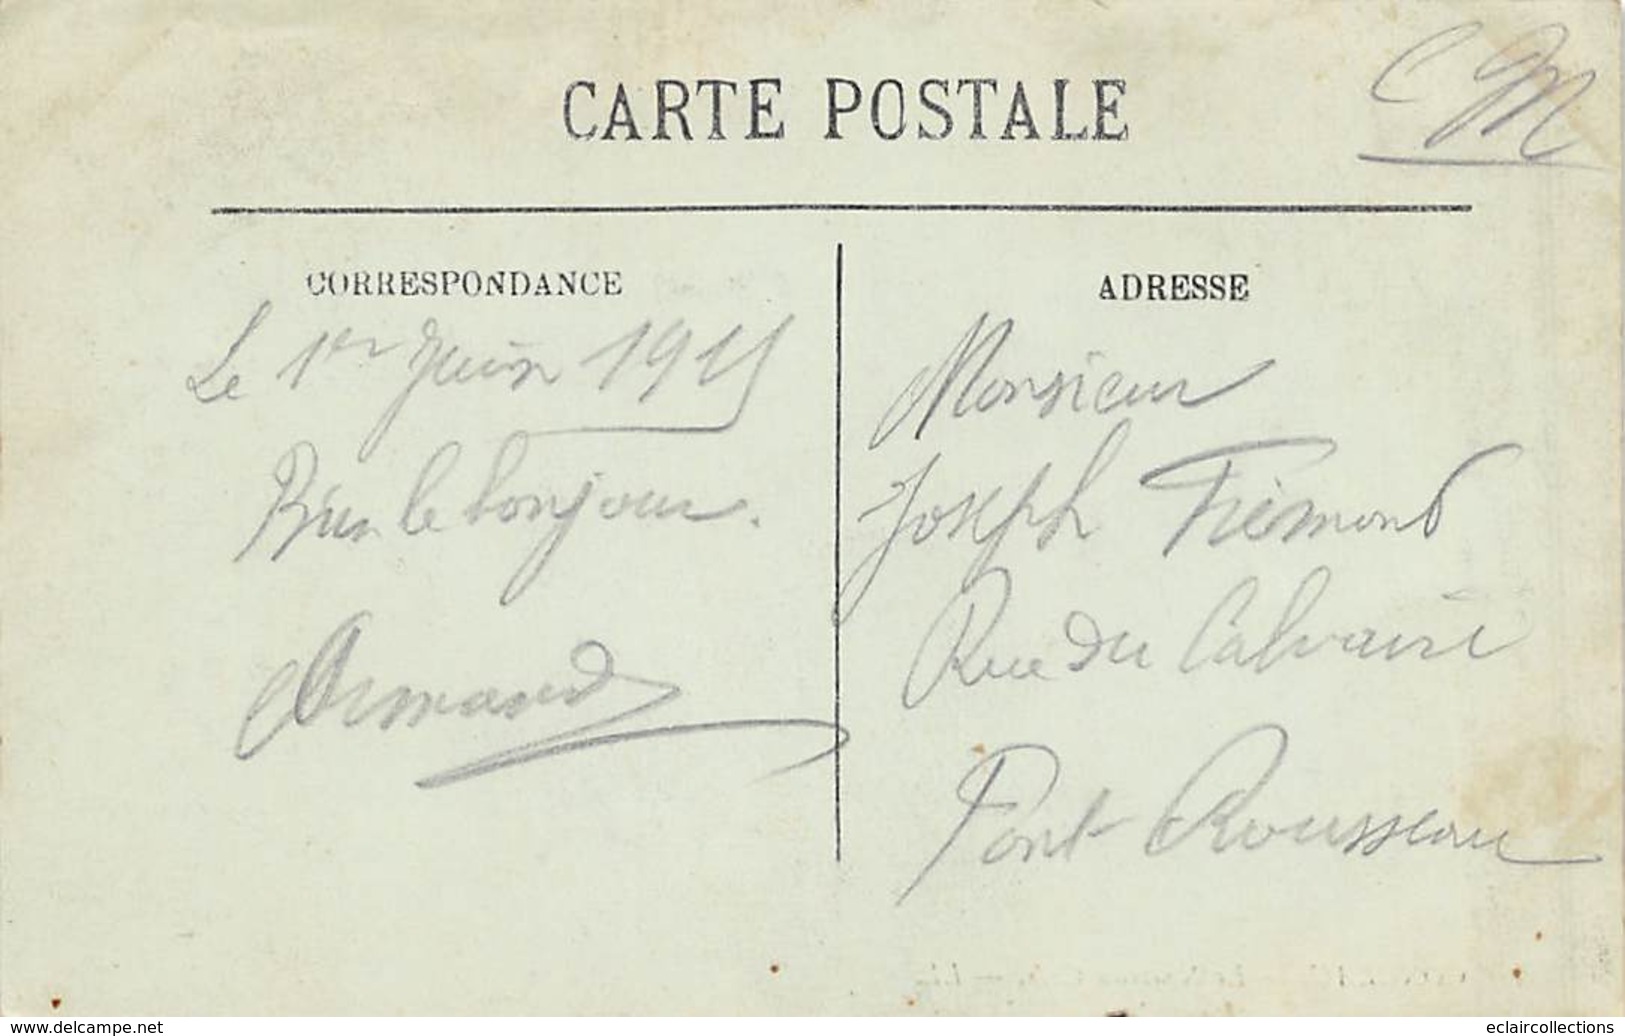 CARTE POSTALE
CM
CORRESPONDANCE
Le 1er Juin 1915
Bien le bonjour.
Armand
ADRESSE
Monsieur
Joseph Frémond
Rue du Calvaire
Pont Rousseau
www.delcampe.net
eclaircollections